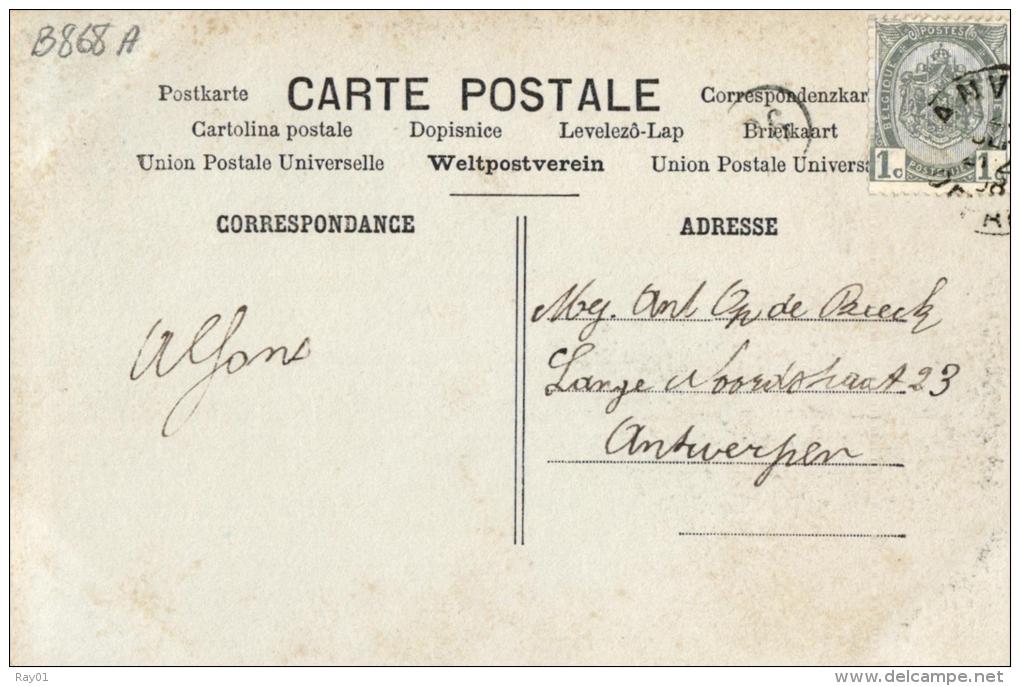 B868A
Postkarte CARTE POSTALE Correspondenzkar
Cartolina postale Dopisnice Levelezô-Lap Briefkaart
Union Postale Universelle Weltpostverein Union Postale Universa
POSTES
BELGIQUE
1c 1
ANV
CORRESPONDANCE
ADRESSE
Alfons
Mej. Ant Op de Beeck
Lange Noordstraat 23
Antwerpen
Ray01
www.delcampe.net